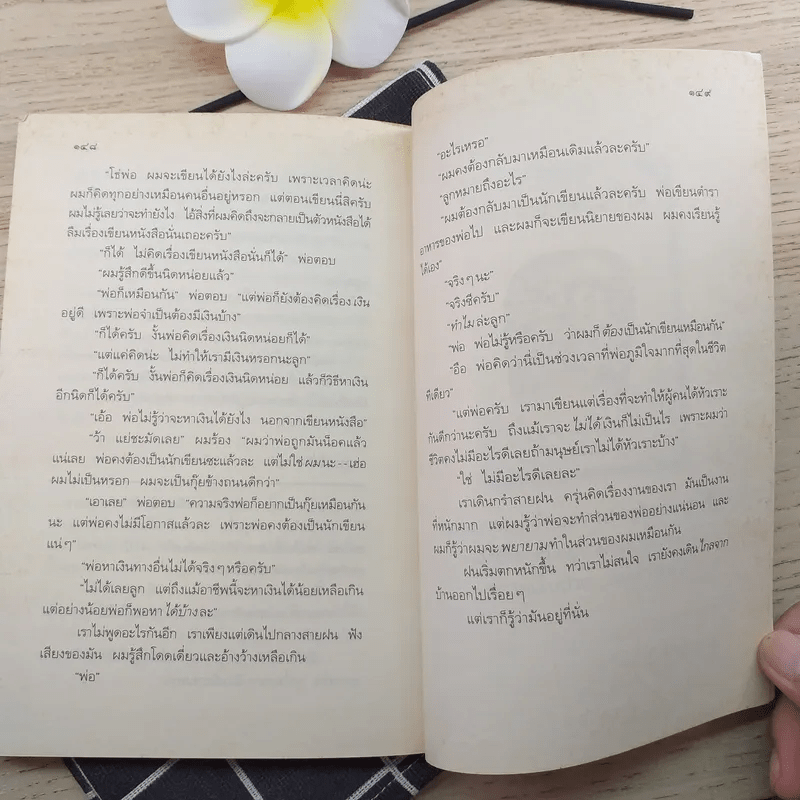 ๑๔๘
“โธ่พ่อ ผมจะเขียนได้ยังไงล่ะครับ เพราะเวลาคิดน่ะ
ผมก็คิดทุกอย่างเหมือนคนอื่นอยู่หรอก แต่ตอนเขียนนี่สิครับ
ผมไม่รู้เลยว่าจะทำยังไง ไอ้สิ่งที่ผมคิดถึงจะกลายเป็นตัวหนังสือได้
ลืมเรื่องเขียนหนังสือนั่นเถอะครับ”
“ก็ได้ ไม่คิดเรื่องเขียนหนังสือนั่นก็ได้” พ่อตอบ
“ผมรู้สึกดีขึ้นนิดหน่อยแล้ว”
“พ่อก็เหมือนกัน” พ่อตอบ “แต่พ่อก็ยังต้องคิดเรื่องเงิน
อยู่ดี เพราะพ่อจำเป็นต้องมีเงินบ้าง”
“ก็ได้ครับ งั้นพ่อคิดเรื่องเงินนิดหน่อยก็ได้”
“แต่แค่คิดน่ะ ไม่ทำให้เรามีเงินหรอกนะลูก”
“ก็ได้ครับ งั้นพ่อก็คิดเรื่องเงินนิดหน่อย แล้วก็วิธีหาเงิน
อีกนิดก็ได้ครับ”
“เอ้อ พ่อไม่รู้ว่าจะหาเงินได้ยังไง นอกจากเขียนหนังสือ”
“ว้า แย่ชะมัดเลย” ผมร้อง “ผมว่าพ่อถูกมันน็อคแล้ว
แน่เลย พ่อคงต้องเป็นนักเขียนซะแล้วละ แต่ไม่ใช่ผมนะ--เฮ่อ
ผมไม่เป็นหรอก ผมจะเป็นกุ๊ยข้างถนนดีกว่า”
“เอาเลย” พ่อตอบ “ความจริงพ่อก็อยากเป็นกุ๊ยเหมือนกัน
นะ แต่พ่อคงไม่มีโอกาสแล้วละ เพราะพ่อคงต้องเป็นนักเขียน
แน่ๆ”
“พ่อหาเงินทางอื่นไม่ได้จริงๆ หรือครับ”
“ไม่ได้เลยลูก แต่ถึงแม้อาชีพนี้จะหาเงินได้น้อยเหลือเกิน
แต่อย่างน้อยพ่อก็พอหาได้บ้างละ”
เราไม่พูดอะไรกันอีก เราเพียงแต่เดินไปกลางสายฝน ฟัง
เสียงของมัน ผมรู้สึกโดดเดี่ยวและอ้างว้างเหลือเกิน
“พ่อ”
๑๔๙
“อะไรเหรอ”
“ผมคงต้องกลับมาเหมือนเดิมแล้วละครับ”
“ลูกหมายถึงอะไร”
“ผมต้องกลับมาเป็นนักเขียนแล้วละครับ พ่อเขียนตำรา
อาหารของพ่อไป และผมก็จะเขียนนิยายของผม ผมคงเรียนรู้
ได้เอง”
“จริงๆ นะ”
“จริงซีครับ”
“ทำไมล่ะลูก”
“พ่อ พ่อไม่รู้หรือครับ ว่าผมก็ต้องเป็นนักเขียนเหมือนกัน”
“อือ พ่อคิดว่านี่เป็นช่วงเวลาที่พ่อภูมิใจมากที่สุดในชีวิต
ทีเดียว”
“แต่พ่อครับ เรามาเขียนแต่เรื่องที่จะทำให้ผู้คนได้หัวเราะ
กันดีกว่านะครับ ถึงแม้เราจะไม่ได้เงินก็ไม่เป็นไร เพราะผมว่า
ชีวิตคงไม่มีอะไรดีเลยถ้ามนุษย์เราไม่ได้หัวเราะบ้าง”
“ใช่ ไม่มีอะไรดีเลยละ”
เราเดินกรำสายฝน ครุ่นคิดเรื่องงานของเรา มันเป็นงาน
ที่หนักมาก แต่ผมรู้ว่าพ่อจะทำส่วนของพ่ออย่างแน่นอน และ
ผมก็รู้ว่าผมจะพยายามทำในส่วนของผมเหมือนกัน
ฝนเริ่มตกหนักขึ้น ทว่าเราไม่สนใจ เรายังคงเดินไกลจาก
บ้านออกไปเรื่อยๆ
แต่เราก็รู้ว่ามันอยู่ที่นั่น